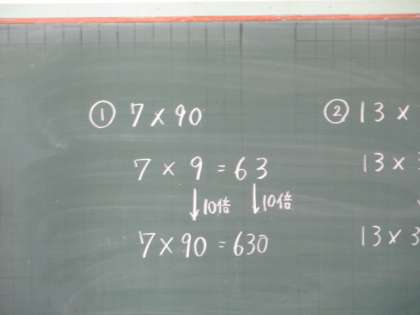 ① 7×90
7×9=63
↓10倍 ↓10倍
7×90=630
② 13×
13×3
13×3